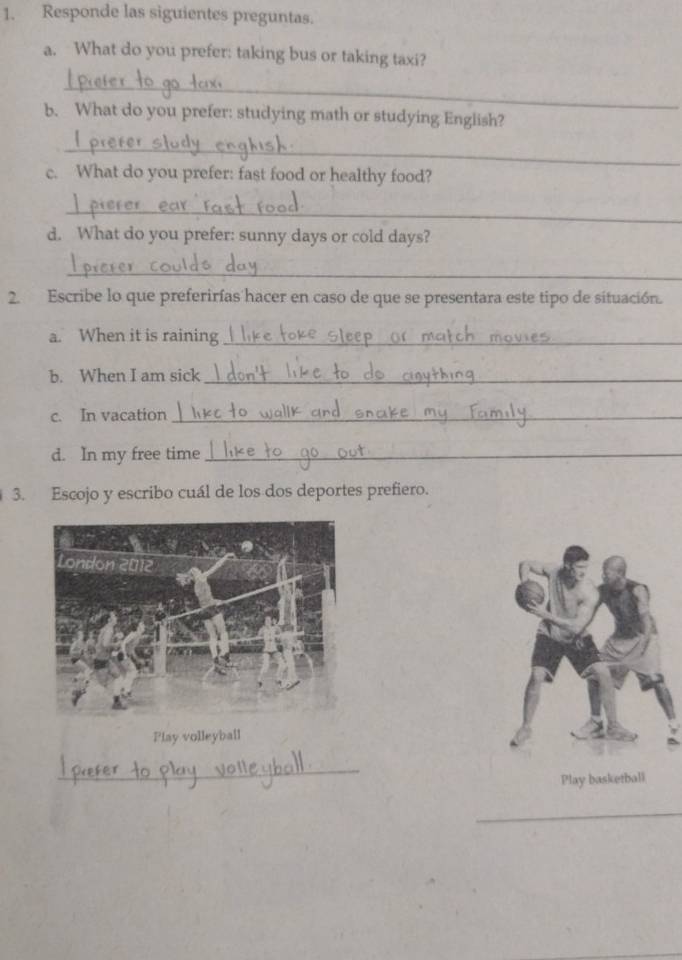 1. Responde las siguientes preguntas.
a. What do you prefer: taking bus or taking taxi?
I prefer to go taxi
b. What do you prefer: studying math or studying English?
I prefer study enghish.
c. What do you prefer: fast food or healthy food?
I prefer ear fast food.
d. What do you prefer: sunny days or cold days?
I prefer coulds day
2. Escribe lo que preferirías hacer en caso de que se presentara este tipo de situación.
a. When it is raining I like toke sleep or match movies
b. When I am sick I don't like to do anything
c. In vacation I like to wallk and snake my Family
d. In my free time I like to go out.
3. Escojo y escribo cuál de los dos deportes prefiero.
London 2012
Play volleyball
I prefer to play volleyball.
Play basketball